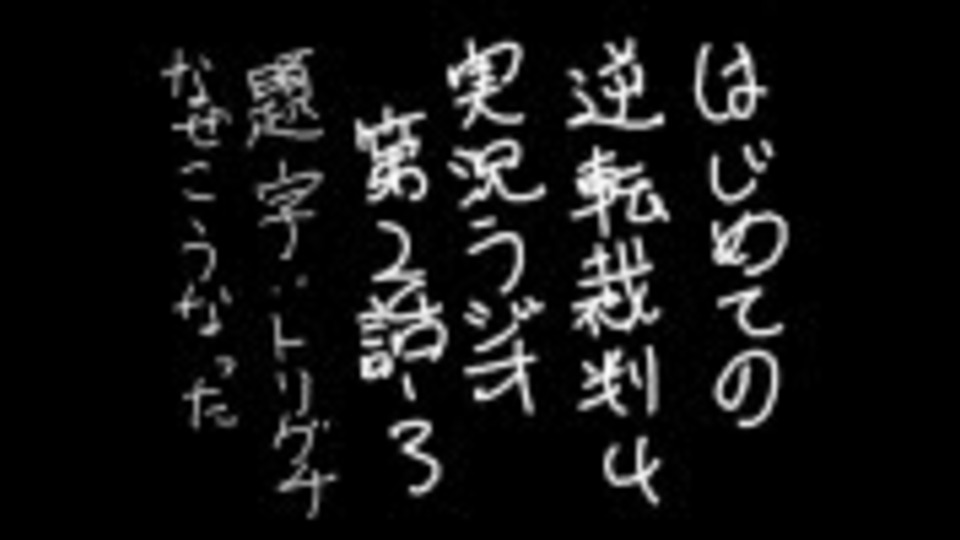 はじめての
逆転裁判4
実況ラジオ
第2話-3
題字:トリグチ
なぜこうなった